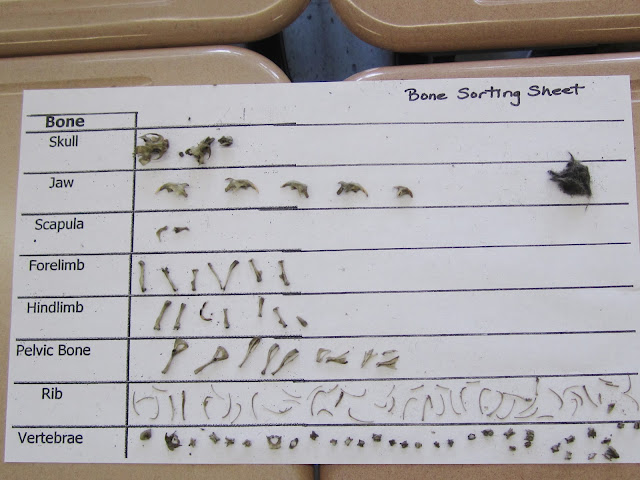 Bone Sorting Sheet
Bone
Skull
Jaw
Scapula
Forelimb
Hindlimb
Pelvic Bone
Rib
Vertebrae